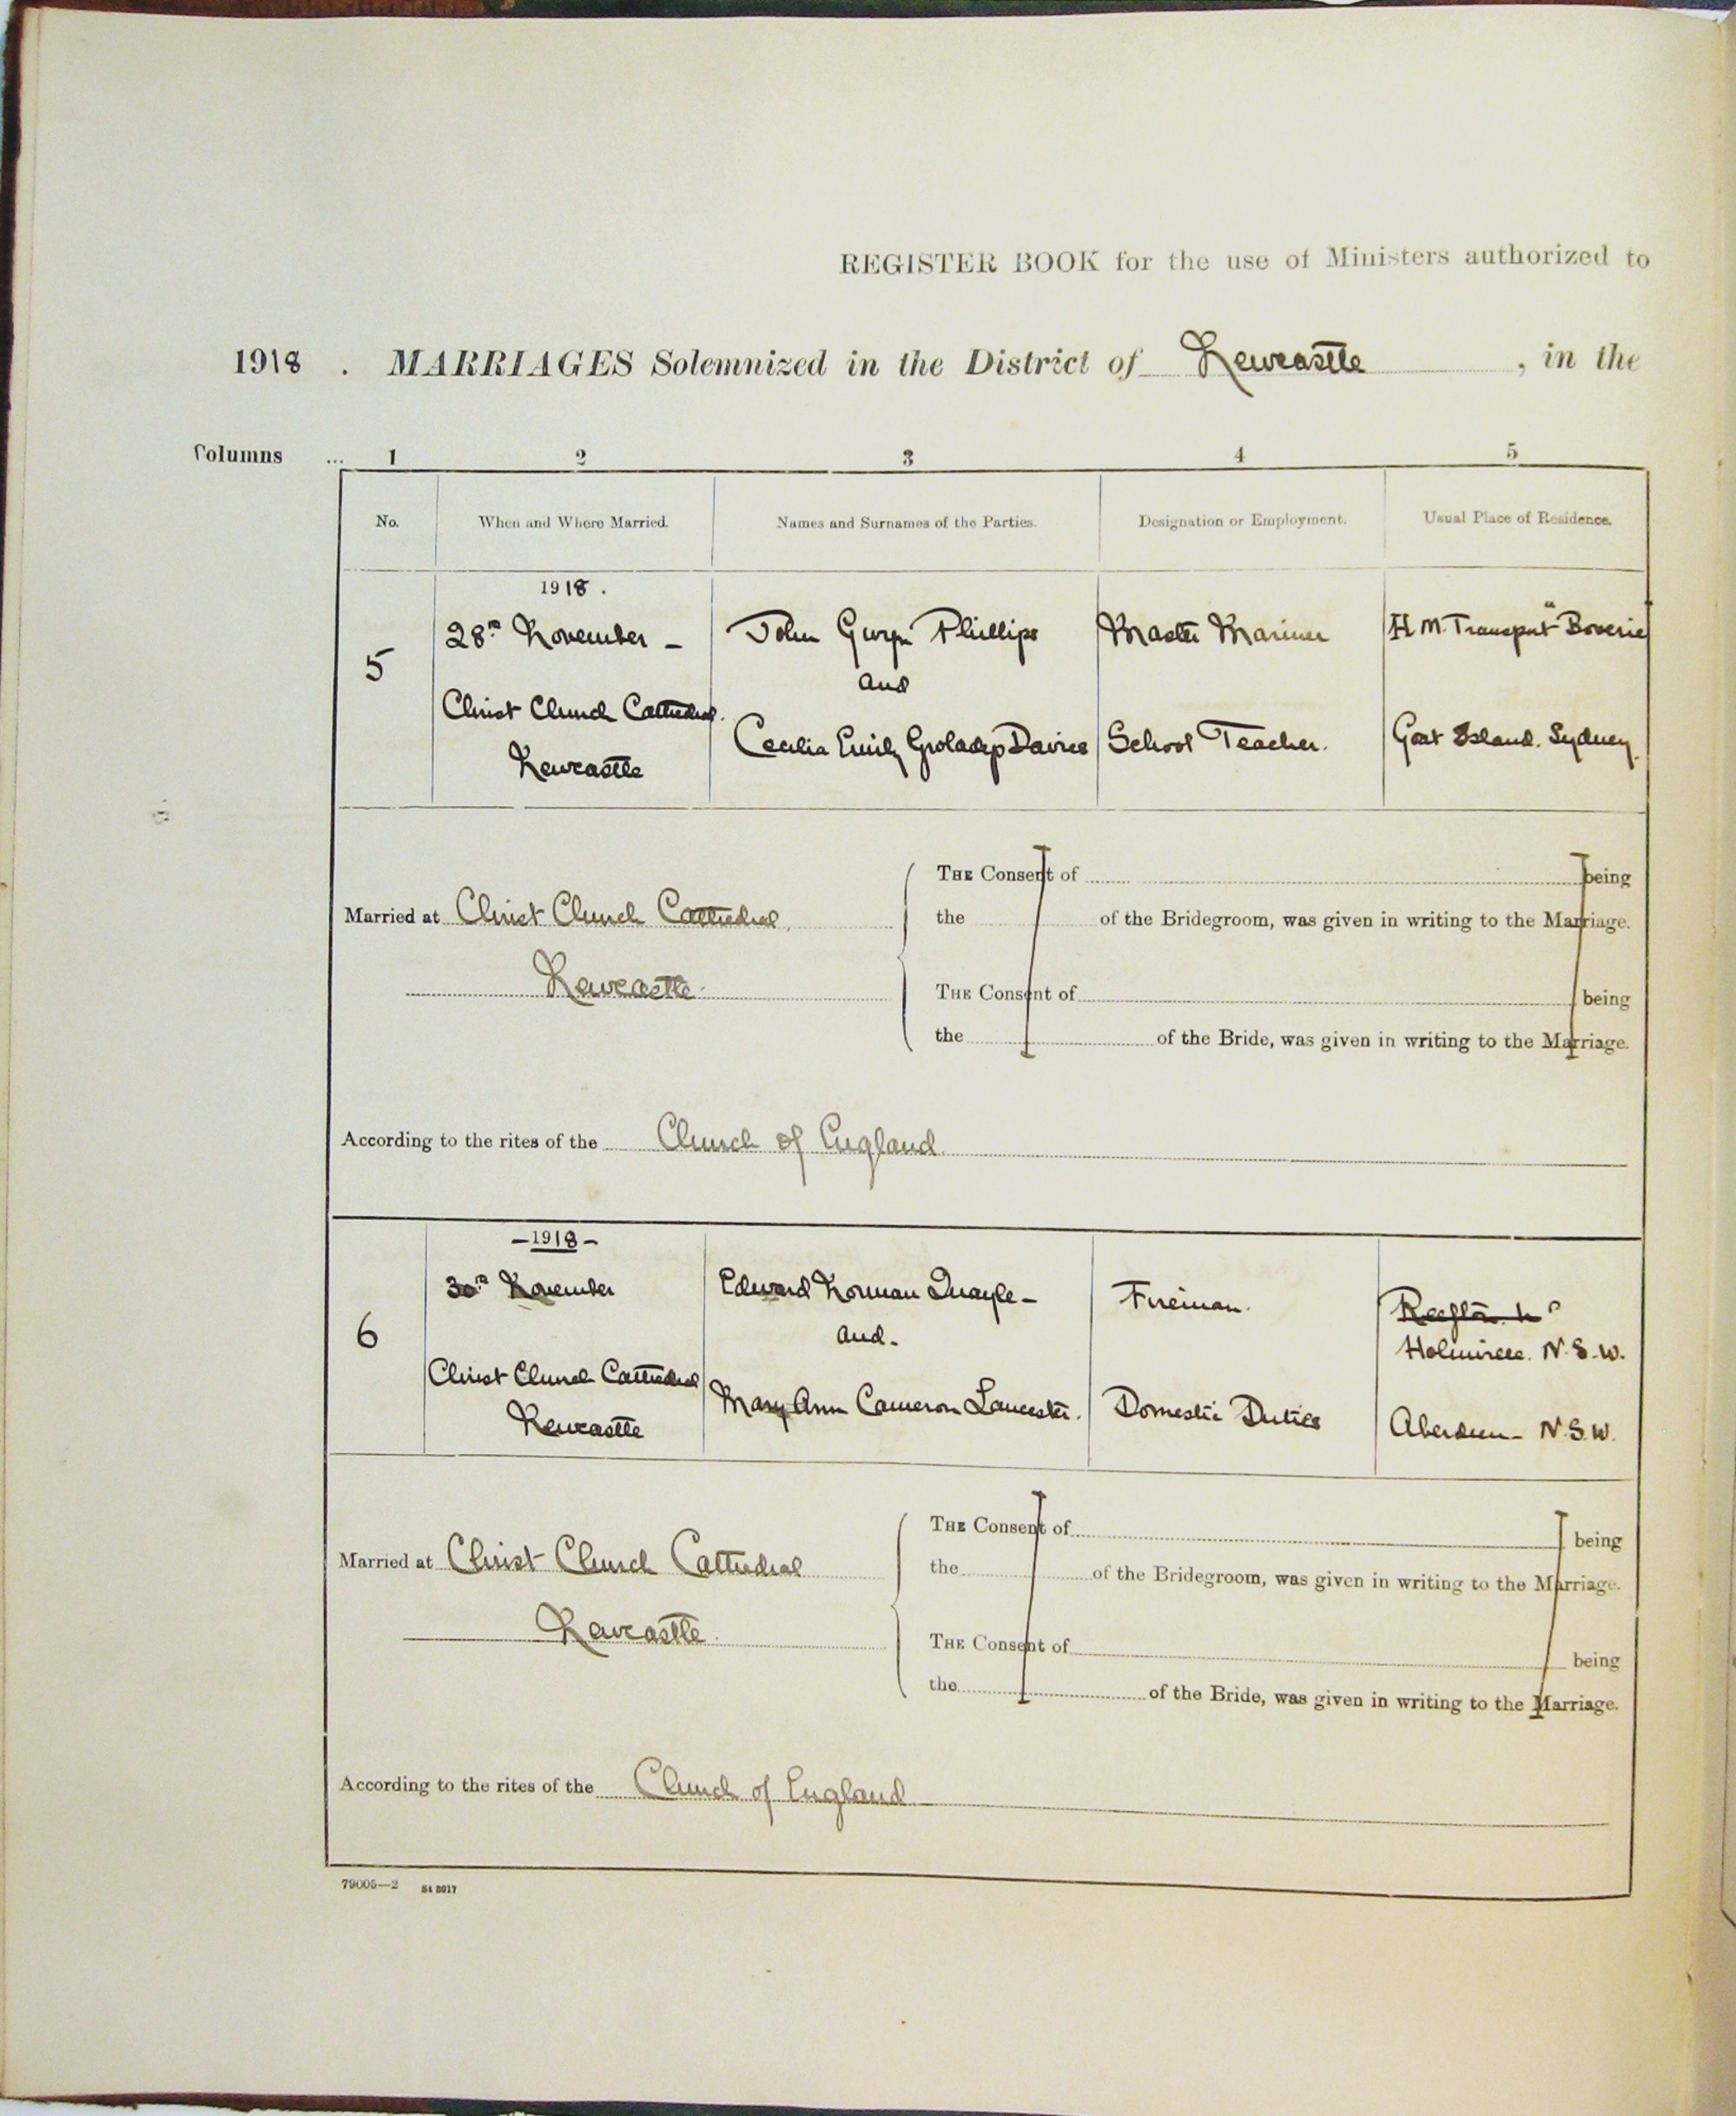 REGISTER BOOK for the use of Ministers authorized to
1918 . MARRIAGES Solemnized in the District of Newcastle , in the
Columns ... 1 2 3 4 5
No. When and Where Married. Names and Surnames of the Parties. Designation or Employment. Usual Place of Residence.
1918 .
28th November - John Gwyn Phillips Master Mariner H.M. Transport "Boverie
5 and
Christ Church Cathedral. Cecilia Emily Davies School Teacher. Goat Island. Sydney.
Newcastle
THE Consent of being
Married at Christ Church Cathedral, the of the Bridegroom, was given in writing to the Marriage.
Newcastle. THE Consent of being
the of the Bride, was given in writing to the Marriage.
According to the rites of the Church of England.
-1918-
30th November Edward Norman Quayle - Fireman.
6 and. Holmville. N.S.W.
Christ Church Cathedral Mary Ann Cameron Lancaster. Domestic Duties Aberdeen - N.S.W.
Newcastle
THE Consent of being
Married at Christ Church Cathedral the of the Bridegroom, was given in writing to the Marriage.
Newcastle. THE Consent of being
the of the Bride, was given in writing to the Marriage.
According to the rites of the Church of England
79005—2 St 8917